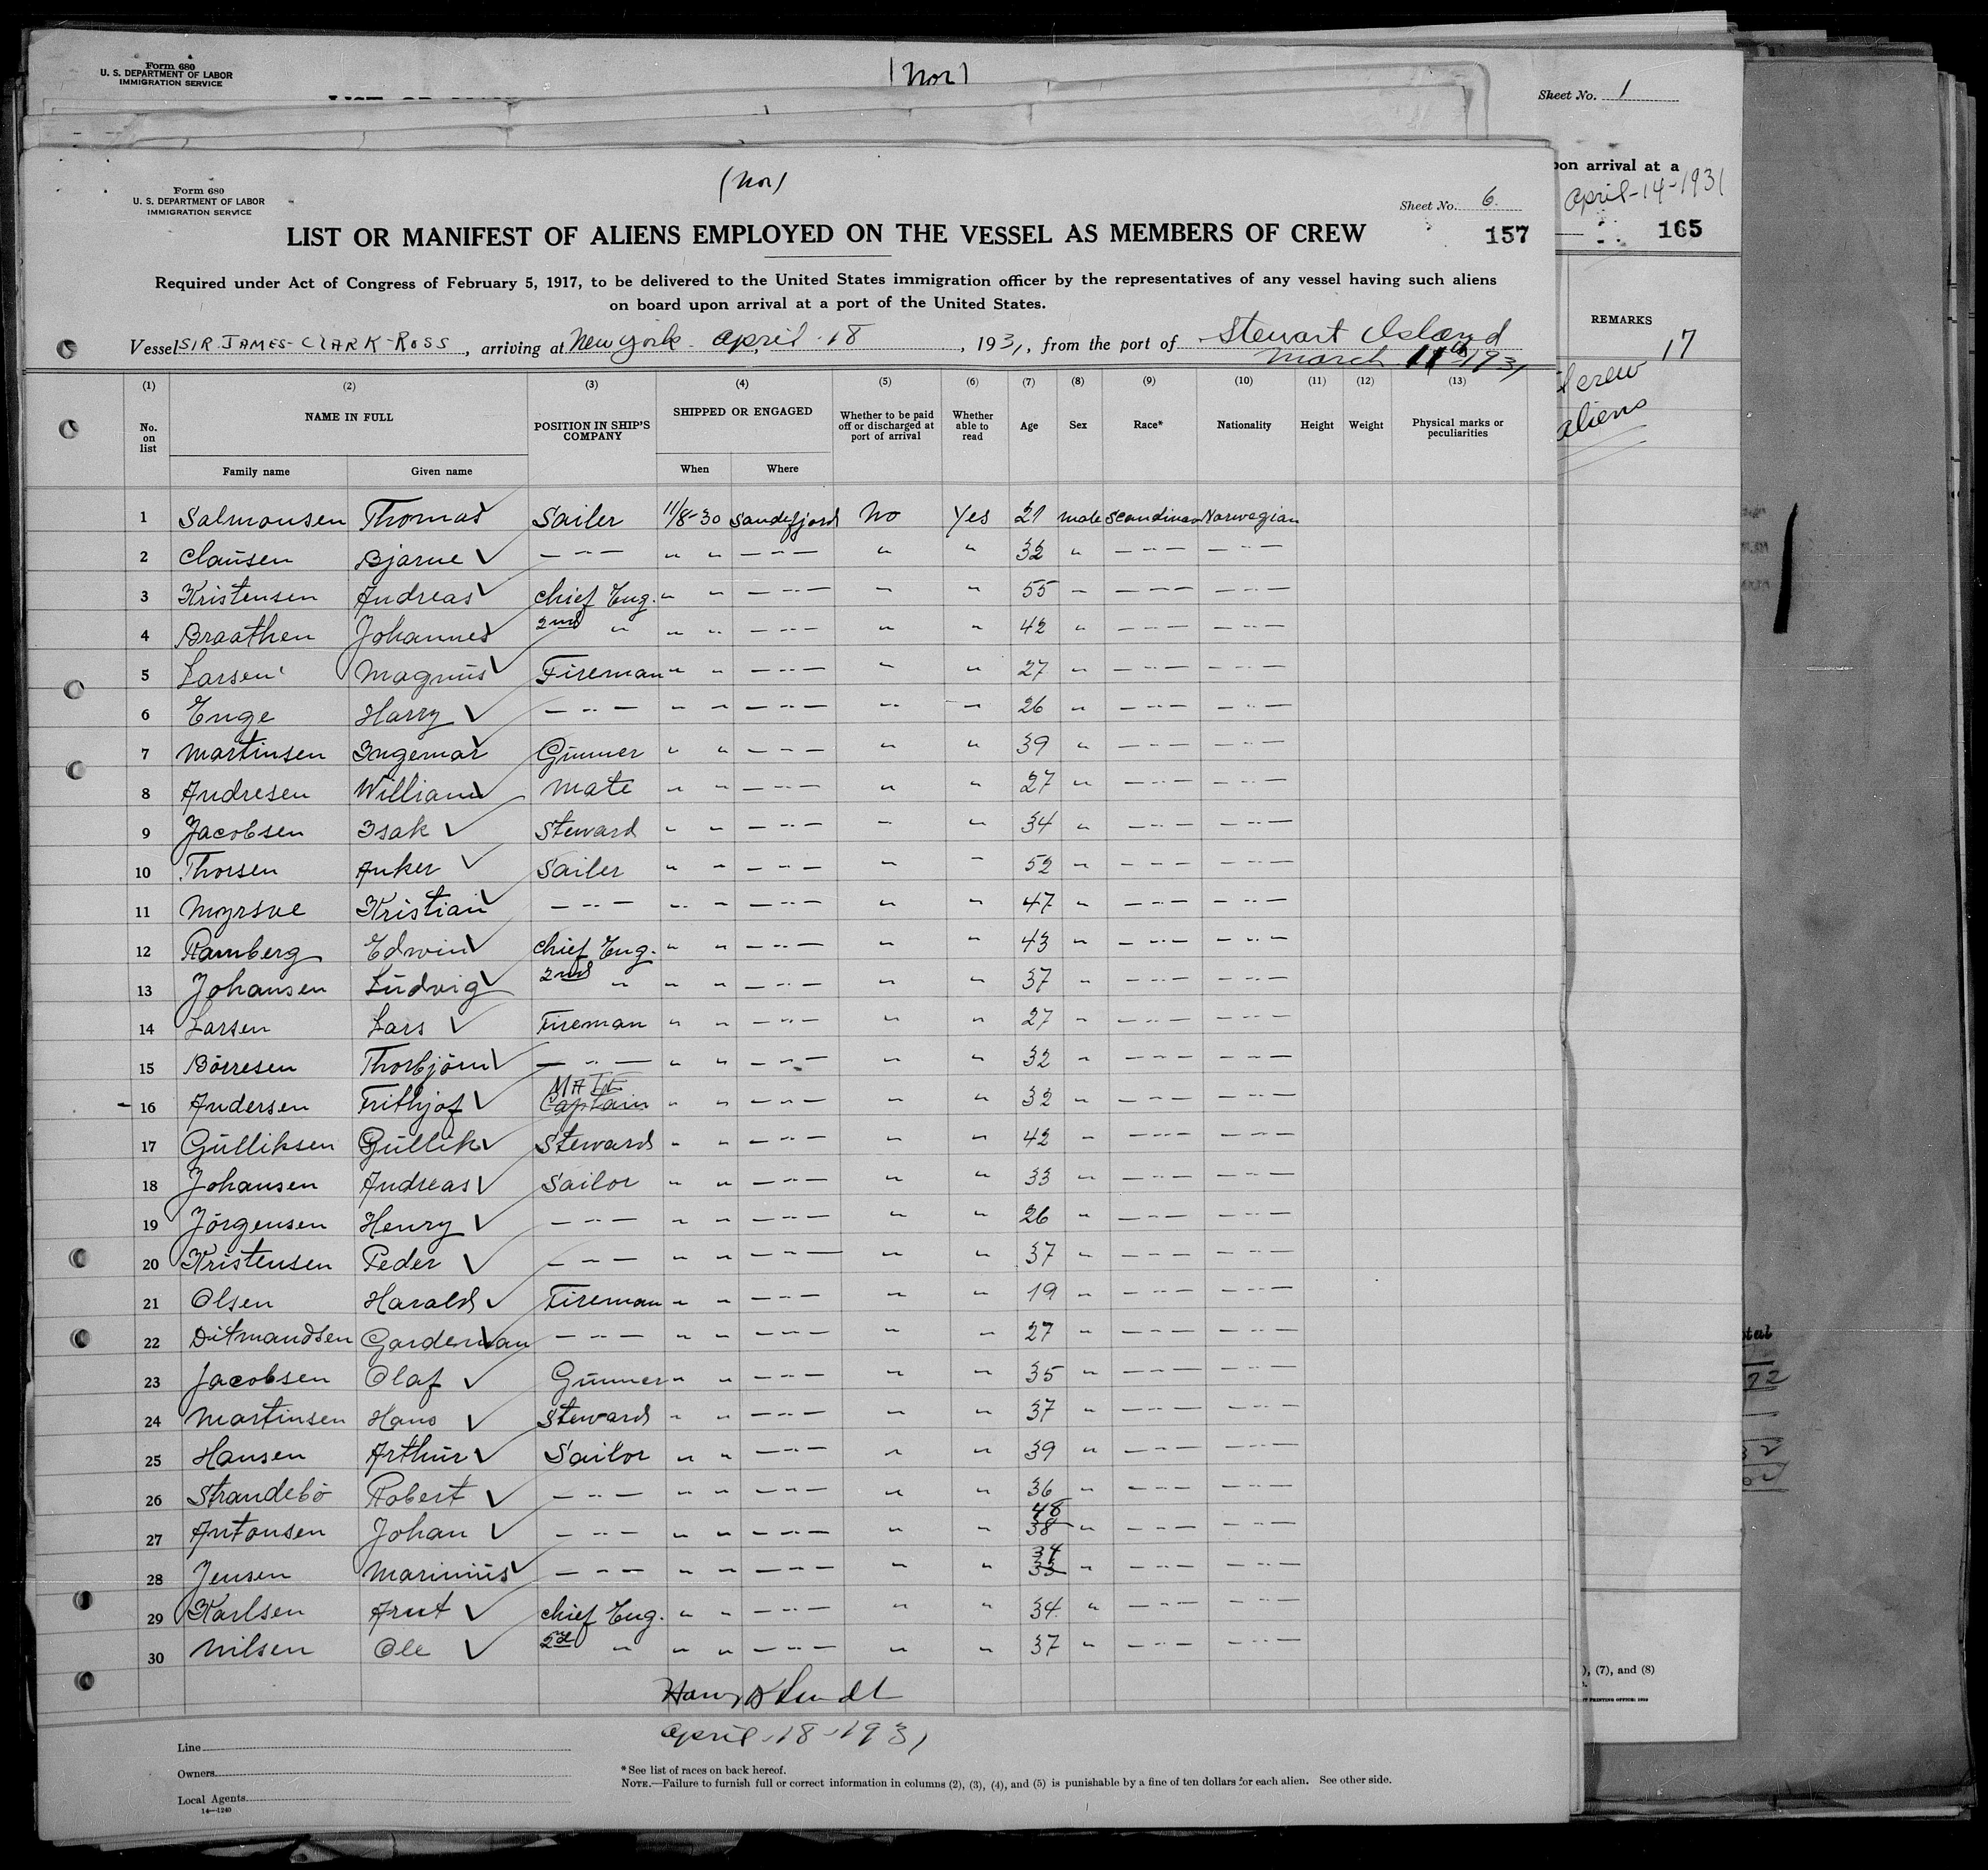 Form 680
U. S. DEPARTMENT OF LABOR
IMMIGRATION SERVICE
(Nor)
Sheet No. 1
pon arrival at a
April-14-1931
165
REMARKS
17
crew
aliens
), (7), and (8)
Form 680
U. S. DEPARTMENT OF LABOR
IMMIGRATION SERVICE
(Nor)
Sheet No. 6.
LIST OR MANIFEST OF ALIENS EMPLOYED ON THE VESSEL AS MEMBERS OF CREW
157
Required under Act of Congress of February 5, 1917, to be delivered to the United States immigration officer by the representatives of any vessel having such aliens
on board upon arrival at a port of the United States.
Vessel SIR JAMES-CLARK-ROSS, arriving at New York April 18, 1931, from the port of Stewart Island
March 11th 1931
(1) (2) (3) (4) (5) (6) (7) (8) (9) (10) (11) (12) (13)
No. on list NAME IN FULL POSITION IN SHIP'S COMPANY SHIPPED OR ENGAGED Whether to be paid off or discharged at port of arrival Whether able to read Age Sex Race* Nationality Height Weight Physical marks or peculiarities
Family name Given name When Where
1 Salmonsen Thomas ✓ Sailer 11/8-30 Sandefjord No Yes 21 male Scandinav Norwegian
2 Clausen Bjarne ✓ — " — " " — " — " " 32 " — " — — " —
3 Kristensen Andreas ✓ Chief Eng. " " — " — " " 55 " — " — — " —
4 Braathen Johannes 2nd " " " — " — " " 42 " — " — — " —
5 Larsen Magnus ✓ Fireman " " — " — " " 27 " — " — — " —
6 Enge Harry ✓ — " — " " — " — " " 26 " — " — — " —
7 Martinsen Ingemar ✓ Gunner " " — " — " " 39 " — " — — " —
8 Andresen William ✓ Mate " " — " — " " 27 " — " — — " —
9 Jacobsen Isak ✓ Steward " " — " — " " 34 " — " — — " —
10 Thorsen Anker ✓ Sailer " " — " — " " 52 " — " — — " —
11 Myrsve Kristian ✓ — " — " " — " — " " 47 " — " — — " —
12 Ramberg Edwin ✓ Chief Eng. " " — " — " " 43 " — " — — " —
13 Johansen Ludvig ✓ 2nd " " " — " — " " 37 " — " — — " —
14 Larsen Lars ✓ Fireman " " — " — " " 27 " — " — — " —
15 Börresen Thorbjörn ✓ — " — " " — " — " " 32 " — " — — " —
16 Andersen Frithjof ✓ MATE Captain " " — " — " " 32 " — " — — " —
17 Gulliksen Gullik ✓ Steward " " — " — " " 42 " — " — — " —
18 Johansen Andreas ✓ Sailor " " — " — " " 33 " — " — — " —
19 Jörgensen Henry ✓ — " — " " — " — " " 26 " — " — — " —
20 Kristensen Peder ✓ — " — " " — " — " " 37 " — " — — " —
21 Olsen Harald ✓ Fireman " " — " — " " 19 " — " — — " —
22 Ditmandsen Garderman ✓ — " — " " — " — " " 27 " — " — — " —
23 Jacobsen Olaf ✓ Gunner " " — " — " " 35 " — " — — " —
24 Martinsen Hans ✓ Steward " " — " — " " 37 " — " — — " —
25 Hansen Arthur ✓ Sailor " " — " — " " 39 " — " — — " —
26 Strandebö Robert ✓ — " — " " — " — " " 36 " — " — — " —
27 Antonsen Johan ✓ — " — " " — " — " " 48 38 " — " — — " —
28 Jensen Marinius ✓ — " — " " — " — " " 34 33 " — " — — " —
29 Karlsen Arnt ✓ Chief Eng. " " — " — " " 34 " — " — — " —
30 Nilsen Ole ✓ 2d " " " — " — " " 37 " — " — — " —
April-18-1931
Line
Owners
Local Agents
14—1240
*See list of races on back hereof.
NOTE.—Failure to furnish full or correct information in columns (2), (3), (4), and (5) is punishable by a fine of ten dollars for each alien. See other side.